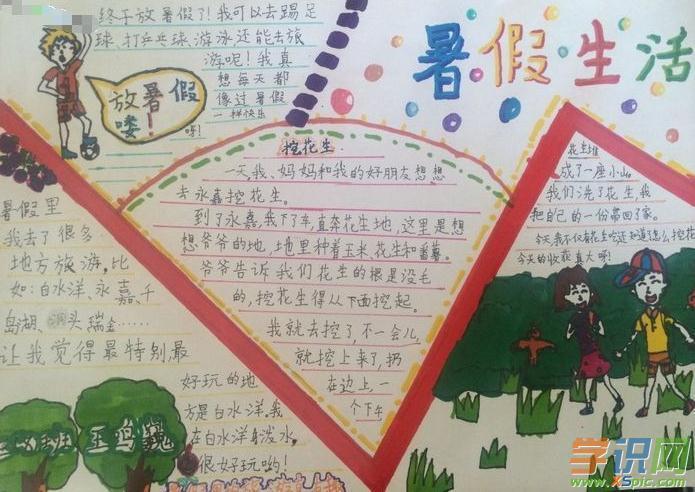 暑假生活
终于放暑假了！我可以去踢足
球、打乒乓球、游泳，还能去旅
游呢！我真
想每天都
像过暑假
一样快乐
呀！
放暑假
喽！
暑假里
我去了很多
地方旅游，比
如：白水洋、永嘉、千
岛湖、洞头、瑞金……
让我觉得最特别最
好玩的地
方是白水洋。我
在白水洋身泼水，
很好玩哟！
挖花生
一天我、妈妈和我的好朋友想想
去永嘉挖花生。
到了永嘉，我下了车，直奔花生地，这里是想
想爷爷的地，地里种着玉米、花生和番薯。
爷爷告诉我们花生的根是没毛
的，挖花生得从下面挖起。
我就去挖了，不一会儿，
就挖上来了，扔
在边上一
个下午
花生堆
成了一座小山。
我们洗了花生，我
把自己的一份带回了家。
今天我不仅有花生吃还知道了怎么挖花
今天的收获真大啊！
学识网
www.XSpic.com